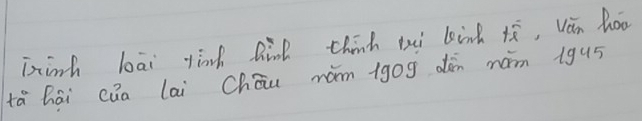 Trình bài tình hình chính trị kinh tế, văn hóa
tả hội của lai Châu năm 1909 đến năm 1945